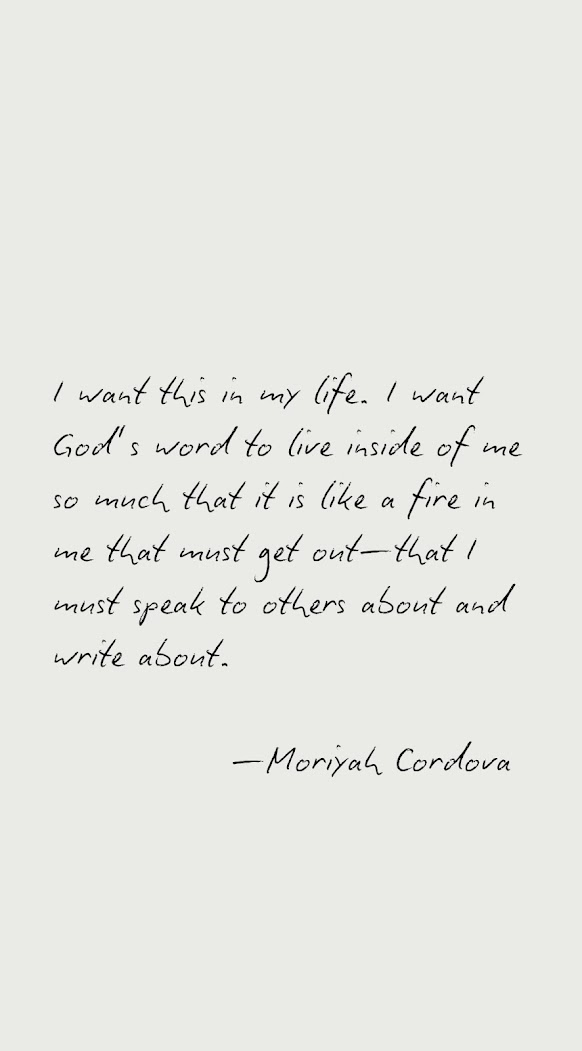 I want this in my life. I want
God's word to live inside of me
so much that it is like a fire in
me that must get out—that I
must speak to others about and
write about.
—Moriyah Cordova